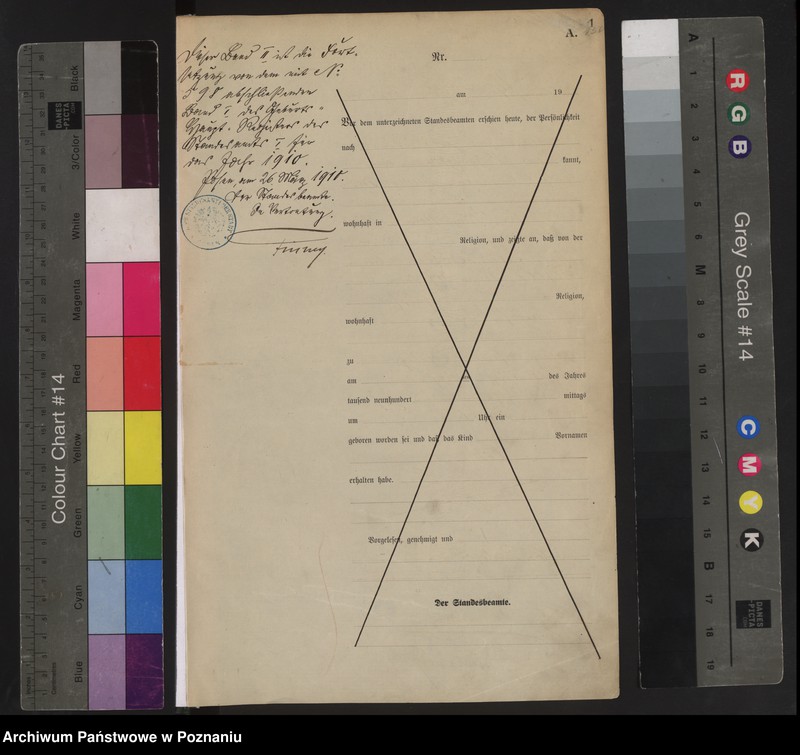 Dieser Band II ist die Fort-
setzung von dem mit No
598 abschließenden
Band I des Geburts-
Haupt-Registers des
Standesamts I für
das Jahr 1910.
Posen, am 26. März 1910.
Der Standesbeamte.
In Vertretung.
A.
1
Nr.
am 19
Vor dem unterzeichneten Standesbeamten erschien heute, der Persönlichkeit
nach
kannt,
wohnhaft in
Religion, und zeigte an, daß von der
Religion,
wohnhaft
zu
am des Jahres
tausend neunhundert mittags
um Uhr ein
geboren worden sei und daß das Kind Vornamen
erhalten habe.
Vorgelesen, genehmigt und
Der Standesbeamte.
Colour Chart #14
Black
3/Color
White
Magenta
Red
Yellow
Green
Cyan
Blue
DANES
PICTA
Grey Scale #14
R
G
B
C
M
Y
K
A
1
2
3
4
5
6
M
8
9
10
11
12
13
14
15
B
17
18
19
DANES
PICTA
Archiwum Państwowe w Poznaniu